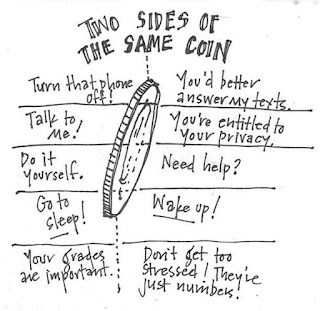 TWO SIDES OF
THE SAME COIN
Turn that phone
off!
You'd better
answer my texts.
Talk to
me!
You're entitled to
your privacy.
Do it
yourself.
Need help?
Go to
sleep!
Wake up!
Your grades
are important.
Don't get too
stressed! They're
just numbers.